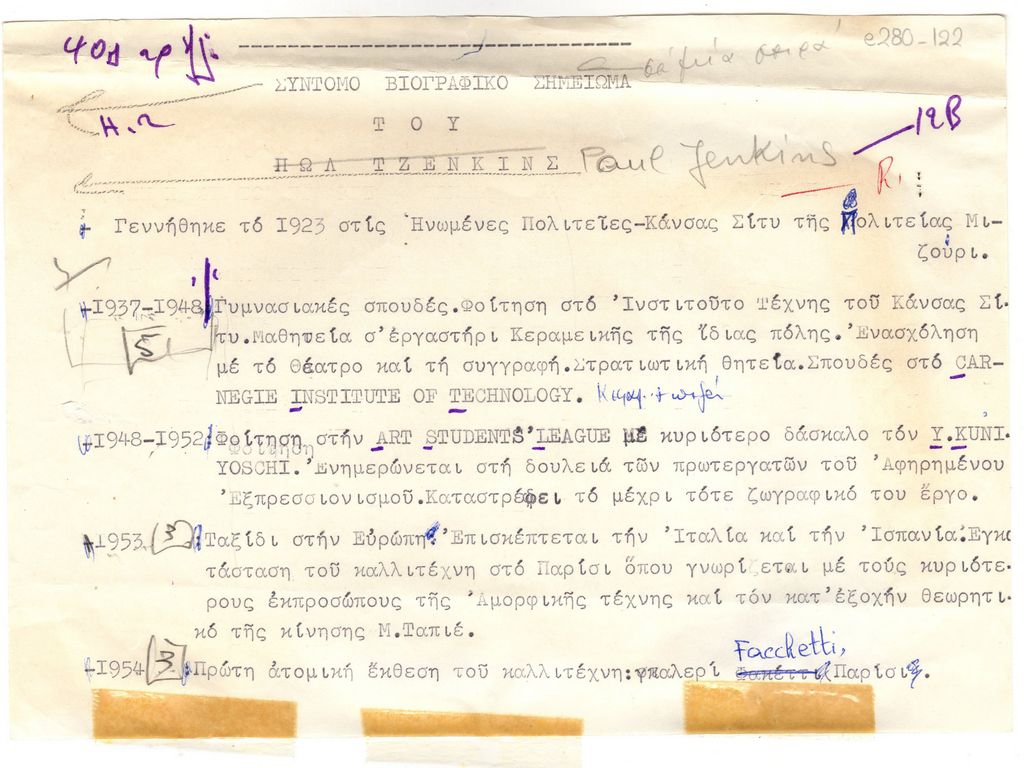 e280-122
σέ μία σειρά
ΣΥΝΤΟΜΟ ΒΙΟΓΡΑΦΙΚΟ ΣΗΜΕΙΩΜΑ
Η.2
12Β
ΤΟΥ
ΠΩΛ ΤΖΕΝΚΙΝΣ Paul Jenkins
R.
Γεννήθηκε τό 1923 στίς Ἡνωμένες Πολιτεῖες-Κάνσας Σίτυ τῆς Πολιτείας Μι-
ζούρι.
-1937-1948 Γυμνασιακές σπουδές.Φοίτηση στό Ἰνστιτοῦτο Τέχνης τοῦ Κάνσας Σί-
5
τυ.Μαθητεία σ'ἐργαστήρι Κεραμεικῆς τῆς ἴδιας πόλης.Ἐνασχόληση
μέ τό Θέατρο καί τή συγγραφή.Στρατιωτική θητεία.Σπουδές στό CAR-
NEGIE INSTITUTE OF TECHNOLOGY.
-1948-1952: Φοίτηση στήν ART STUDENTS'LEAGUE μέ κυριότερο δάσκαλο τόν Y.KUNI-
YOSCHI.Ἐνημερώνεται στή δουλειά τῶν πρωτεργατῶν τοῦ Ἀφηρημένου
Ἐξπρεσσιονισμοῦ.Καταστρέφει τό μέχρι τότε ζωγραφικό του ἔργο.
-1953 3 :Ταξίδι στήν Εὐρώπη.Ἐπισκέπτεται τήν Ἰταλία καί τήν Ἰσπανία.Ἐγκα
τάσταση τοῦ καλλιτέχνη στό Παρίσι ὅπου γνωρίζεται μέ τούς κυριότε-
ρους ἐκπροσώπους τῆς Ἀμορφικῆς τέχνης καί τόν κατ'ἐξοχήν θεωρητι-
κό τῆς κίνησης Μ.Ταπιέ.
Facchetti,
-1954 3 :Πρώτη ἀτομική ἔκθεση τοῦ καλλιτέχνη:γκαλερί Φακέττι Παρίσι.